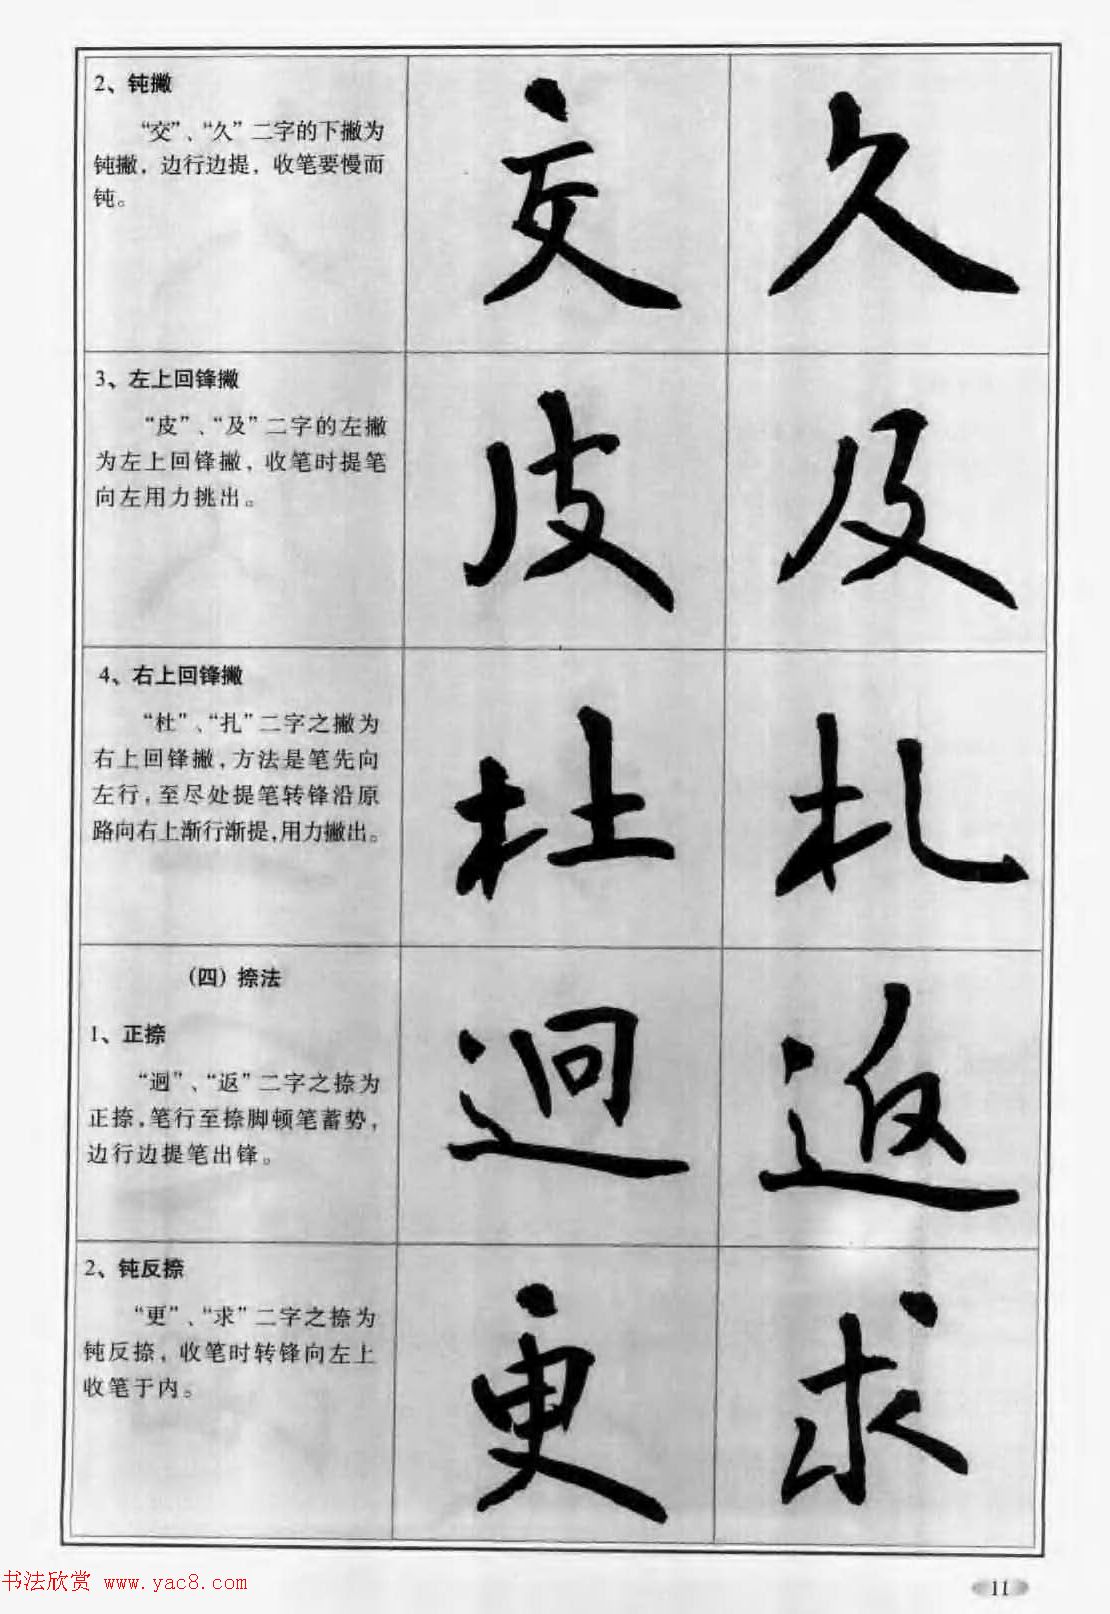 2、钝撇
“交”、“久”二字的下撇为
钝撇，边行边提，收笔要慢而
钝。
交 久
3、左上回锋撇
“皮”、“及”二字的左撇
为左上回锋撇，收笔时提笔
向左用力挑出。
皮 及
4、右上回锋撇
“杜”、“扎”二字之撇为
右上回锋撇，方法是笔先向
左行，至尽处提笔转锋沿原
路向右上渐行渐提，用力撇出。
杜 札
（四）捺法
1、正捺
“迥”、“返”二字之捺为
正捺，笔行至捺脚顿笔蓄势，
边行边提笔出锋。
迥 返
2、钝反捺
“更”、“求”二字之捺为
钝反捺，收笔时转锋向左上
收笔于内。
更 求
书法欣赏 www.yac8.com
11